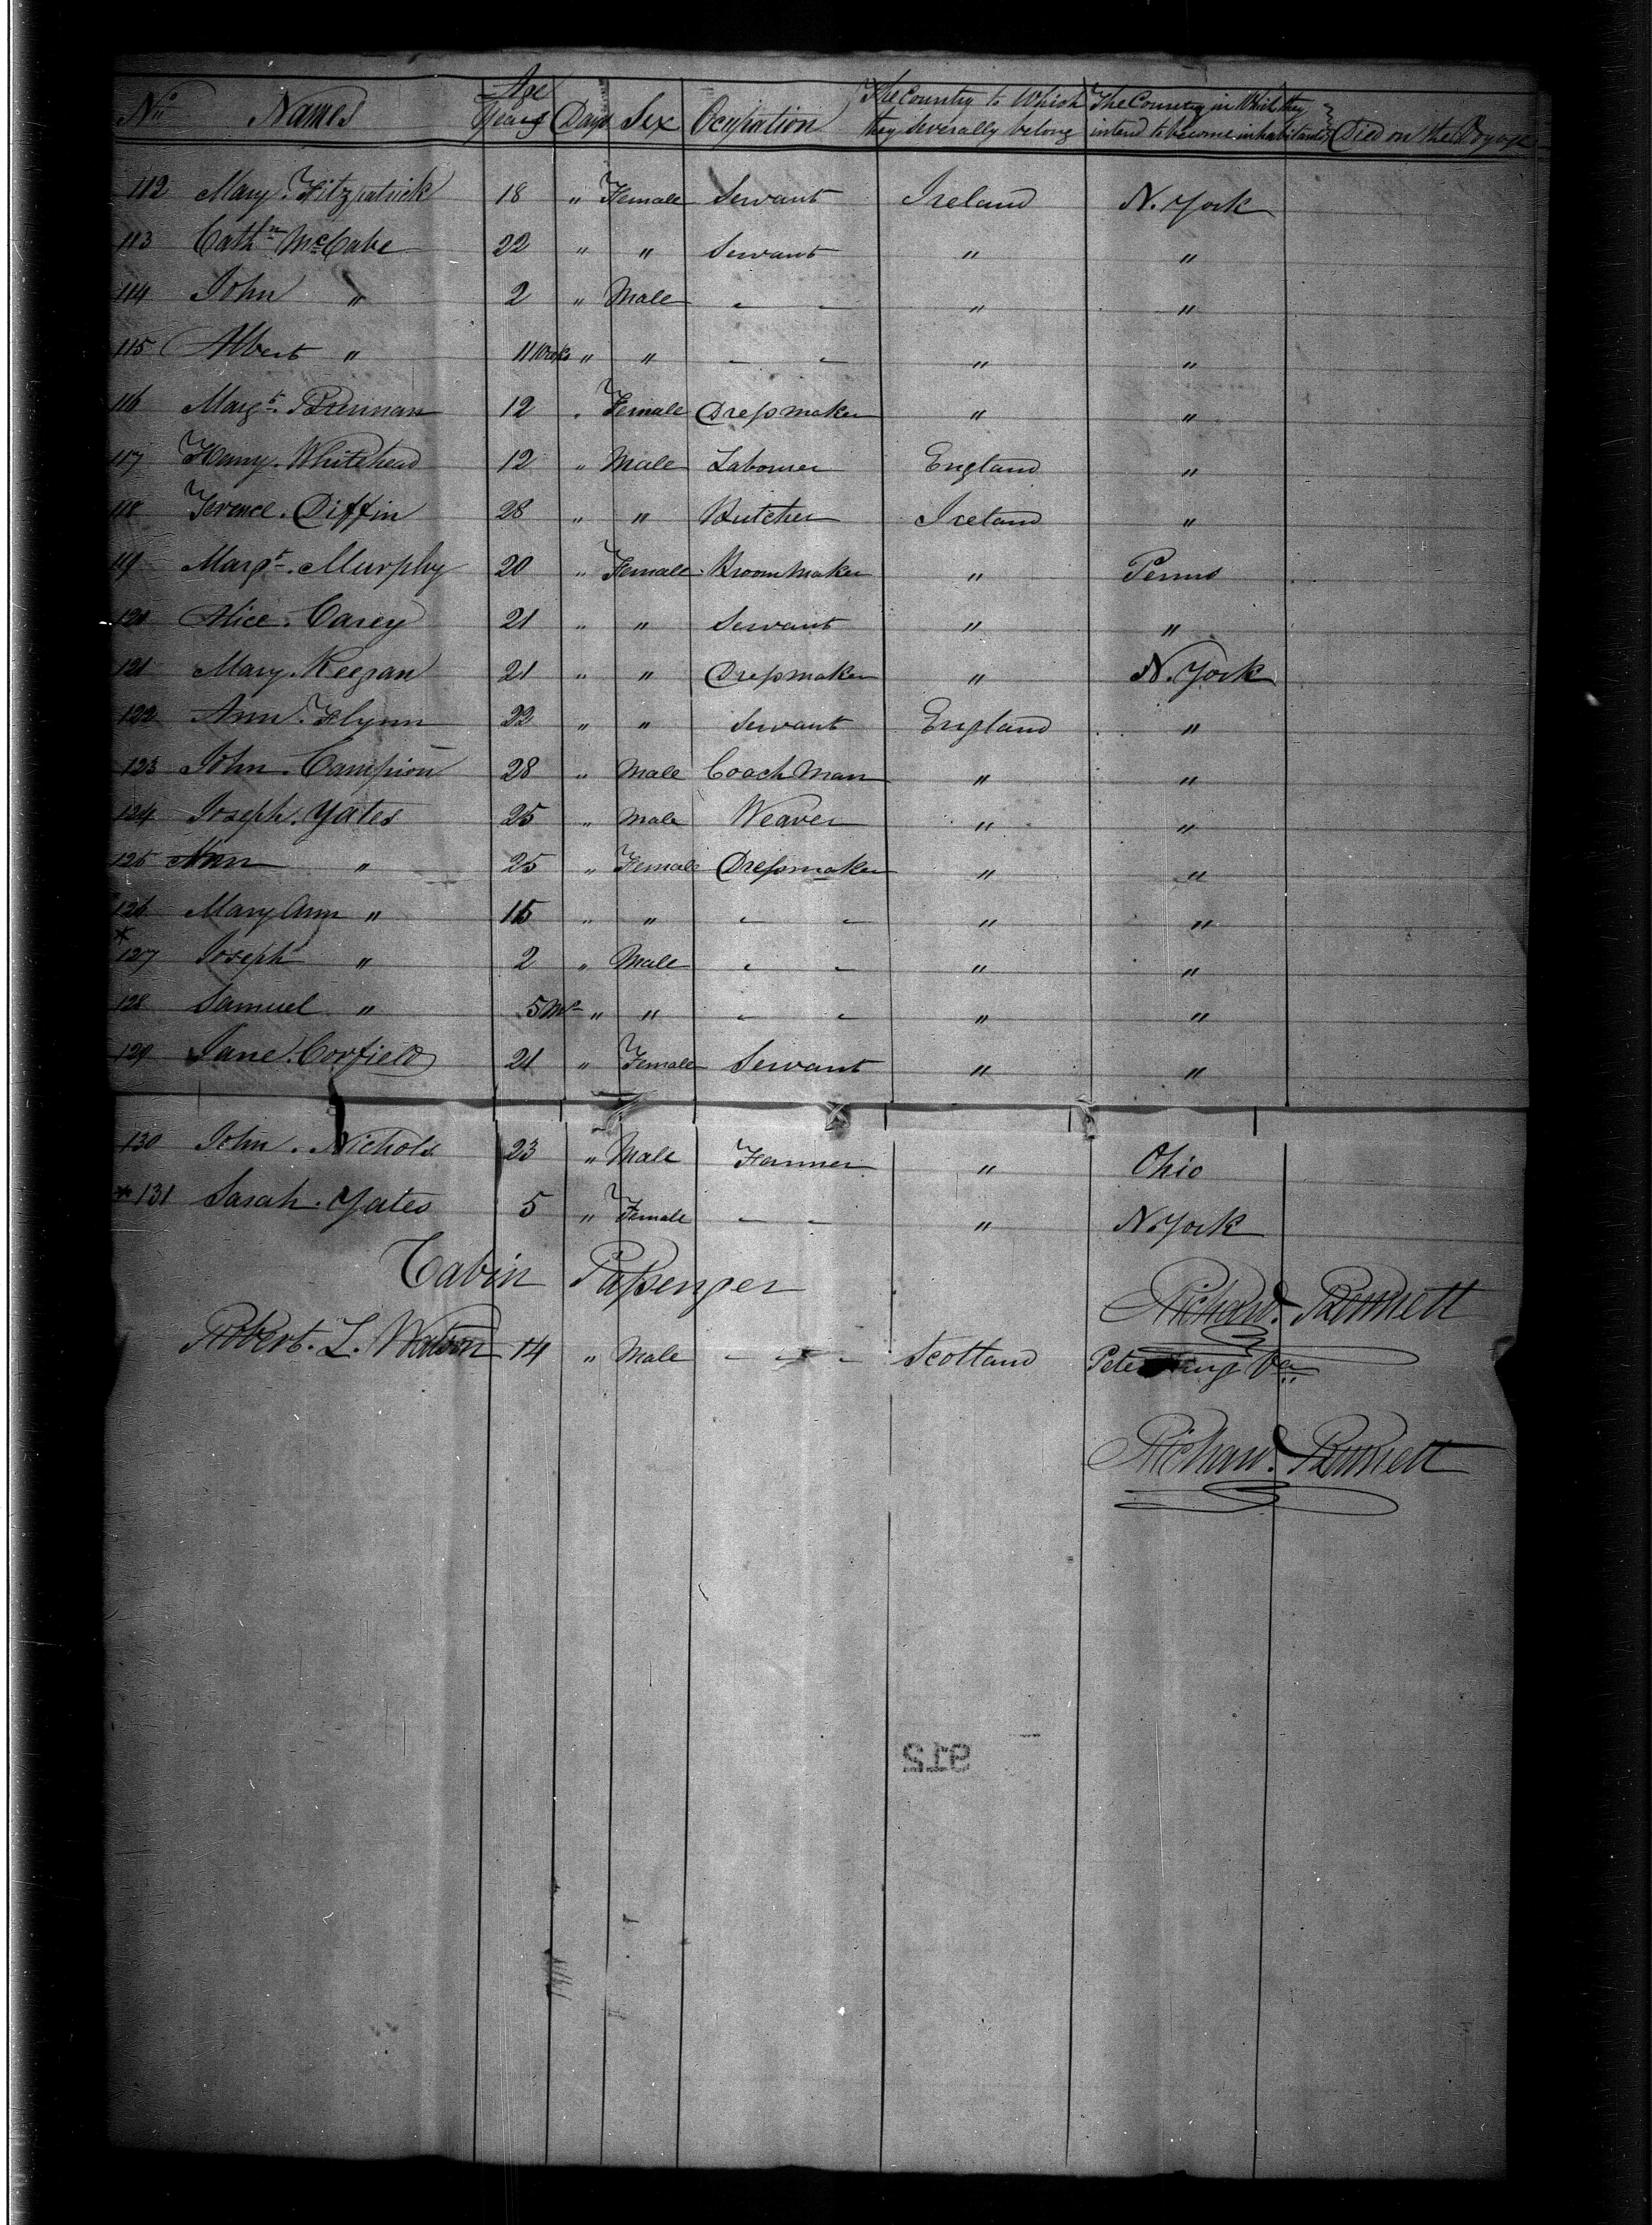 No Names Age Years Days Sex Ocupation The Country to Which they severally belong The Country in Which they intend to become inhabitants Died on the Voyage
112 Mary. Fitzpatrick 18 " Female Servant Ireland N. York
113 Cathn McCabe 22 " " Servant " "
114 John " 2 " Male - - " "
115 Albert " 11 Weeks " " - - " "
116 Margt. Brennan 12 " Female Dressmaker " "
117 Henry. Whitehead 12 " Male Labourer England "
118 Terence. Diffin 28 " " Butcher Ireland "
119 Margt. Murphy 20 " Female Broommaker " Penns
120 Alice. Carey 21 " " Servant " "
121 Mary. Keegan 21 " " Dressmaker " N. York
122 Ann. Flynn 22 " " Servant England "
123 John. Campion 28 " Male Coach Man " "
124 Joseph. Yates 25 " Male Weaver " "
125 Ann " 25 " Female Dressmaker " "
126 Mary Ann " 15 " " - - " "
* 127 Joseph " 2 " Male - - " "
128 Samuel " 5 Ms " " - - " "
129 Jane. Corfield 21 " Female Servant " "
130 John. Nichols 23 " Male Farmer " Ohio
* 131 Sarah. Yates 5 " Female - - " N. York
Cabin Passenger
Richard. Bennett
Robert. L. Watson 14 " Male - - - Scotland Petersburg Va
Richard. Bennett
912